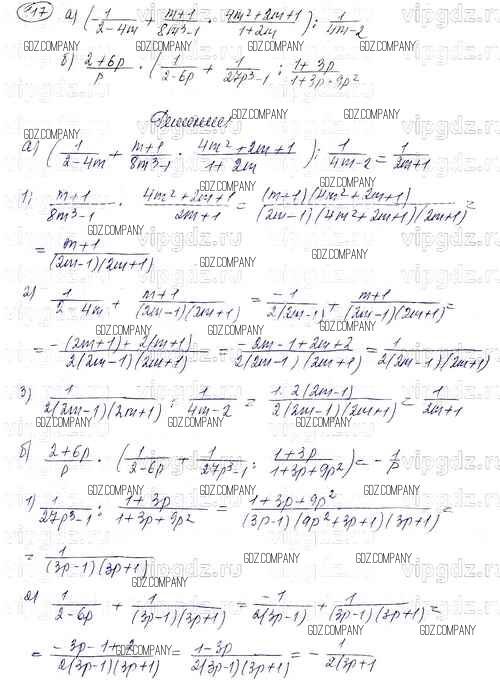 317 а) (1/(2-4m) + (m+1)/(8m³-1) · (4m²+2m+1)/(1+2m)) : 1/(4m-2)
б) (2+6p)/p · (1/(2-6p) + 1/(27p³-1) : (1+3p)/(1+3p+9p²)
Решение
а) (1/(2-4m) + (m+1)/(8m³-1) · (4m²+2m+1)/(1+2m)) : 1/(4m-2) = 1/(2m+1)
1) (m+1)/(8m³-1) · (4m²+2m+1)/(2m+1) = ((m+1)(4m²+2m+1))/((2m-1)(4m²+2m+1)(2m+1)) =
= (m+1)/((2m-1)(2m+1))
2) 1/(2-4m) + (m+1)/((2m-1)(2m+1)) = -1/(2(2m-1)) + (m+1)/((2m-1)(2m+1)) =
= (-(2m+1)+2(m+1))/(2(2m-1)(2m+1)) = (-2m-1+2m+2)/(2(2m-1)(2m+1)) = 1/(2(2m-1)(2m+1))
3) 1/(2(2m-1)(2m+1)) : 1/(4m-2) = (1·2(2m-1))/(2(2m-1)(2m+1)) = 1/(2m+1)
б) (2+6p)/p · (1/(2-6p) + 1/(27p³-1) : (1+3p)/(1+3p+9p²)) = -1/p
1) 1/(27p³-1) : (1+3p)/(1+3p+9p²) = (1+3p+9p²)/((3p-1)(9p²+3p+1)(3p+1)) =
= 1/((3p-1)(3p+1))
2) 1/(2-6p) + 1/((3p-1)(3p+1)) = -1/(2(3p-1)) + 1/((3p-1)(3p+1)) =
= (-3p-1+2)/(2(3p-1)(3p+1)) = (1-3p)/(2(3p-1)(3p+1)) = -1/(2(3p+1